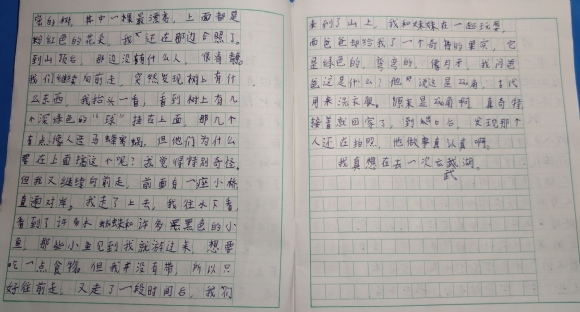 宽的树，其中一棵最漂亮，上面都是
粉红色的花朵，我还在那边合照了。
到山顶后，那边没有什么人，很清静
我们继续向前走，突然发现树上有什
么东西，我抬头一看，看到树上有几
个深绿色的“球”挂在上面，那几个
有点像人造马蜂窝蜗，但他们为什么
要在上面挂这个呢？我觉得特别奇怪。
但我又继续向前走，前面有一座小桥
直通对岸。我走了上去，我往水下看，
看到了许多水蜘蛛和许多黑黑色的小
鱼，那些小鱼见到我就游过来，想要
吃一点食物。但我并没有带，所以只
好往前走，又走了一段时间后，我们
来到了山上，我和妹妹在一起玩耍，
而爸爸却给我了一个奇特的果实，它
是绿色的，弯弯的，像月牙，我问爸
爸这是什么？他说这是皂角，古代
用来洗衣服。原来是皂角啊，真奇特
接着就回家了，到出口后，发现那个
人还在拍照，他做事真认真啊。
我真想在去一次玄武湖。
武